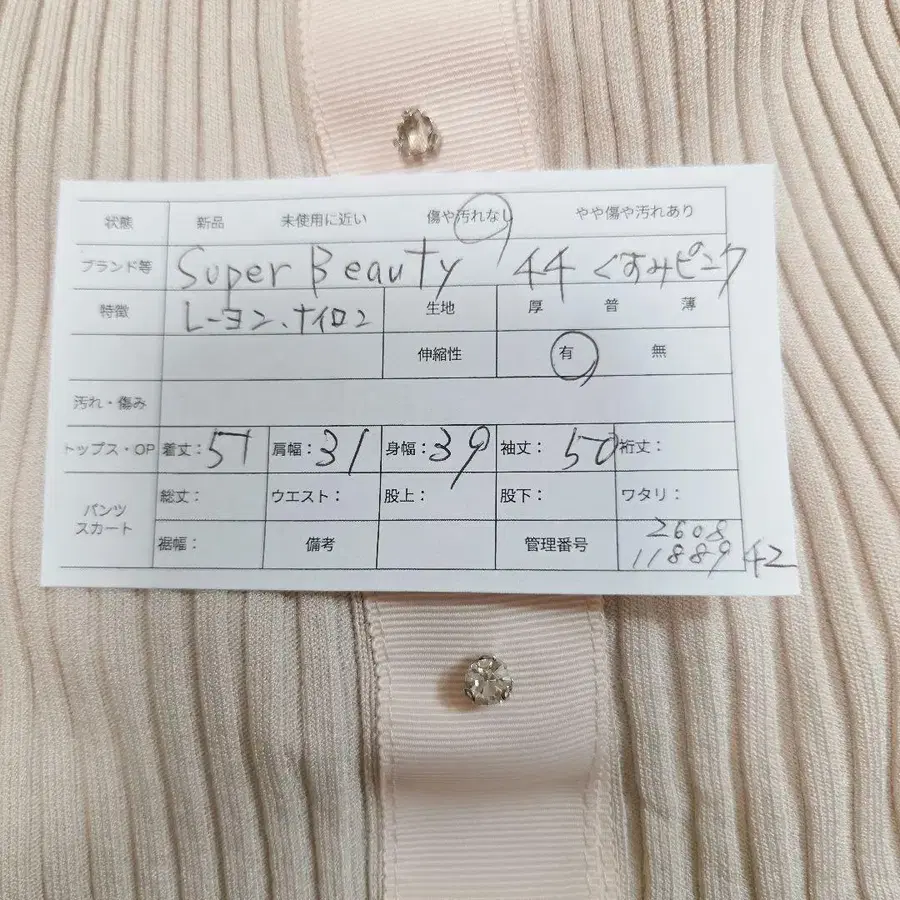 状態 新品 未使用に近い 傷や汚れなし やや傷や汚れあり
ブランド等 Super Beauty 44 くすみピンク
特徴 レーヨン、ナイロン 生地 厚 普 薄
伸縮性 有 無
汚れ・傷み
トップス・OP 着丈：51 肩幅：31 身幅：39 袖丈：50 裄丈：
パンツ スカート 総丈： ウエスト： 股上： 股下： ワタリ：
裾幅： 備考 管理番号 2608
1188942